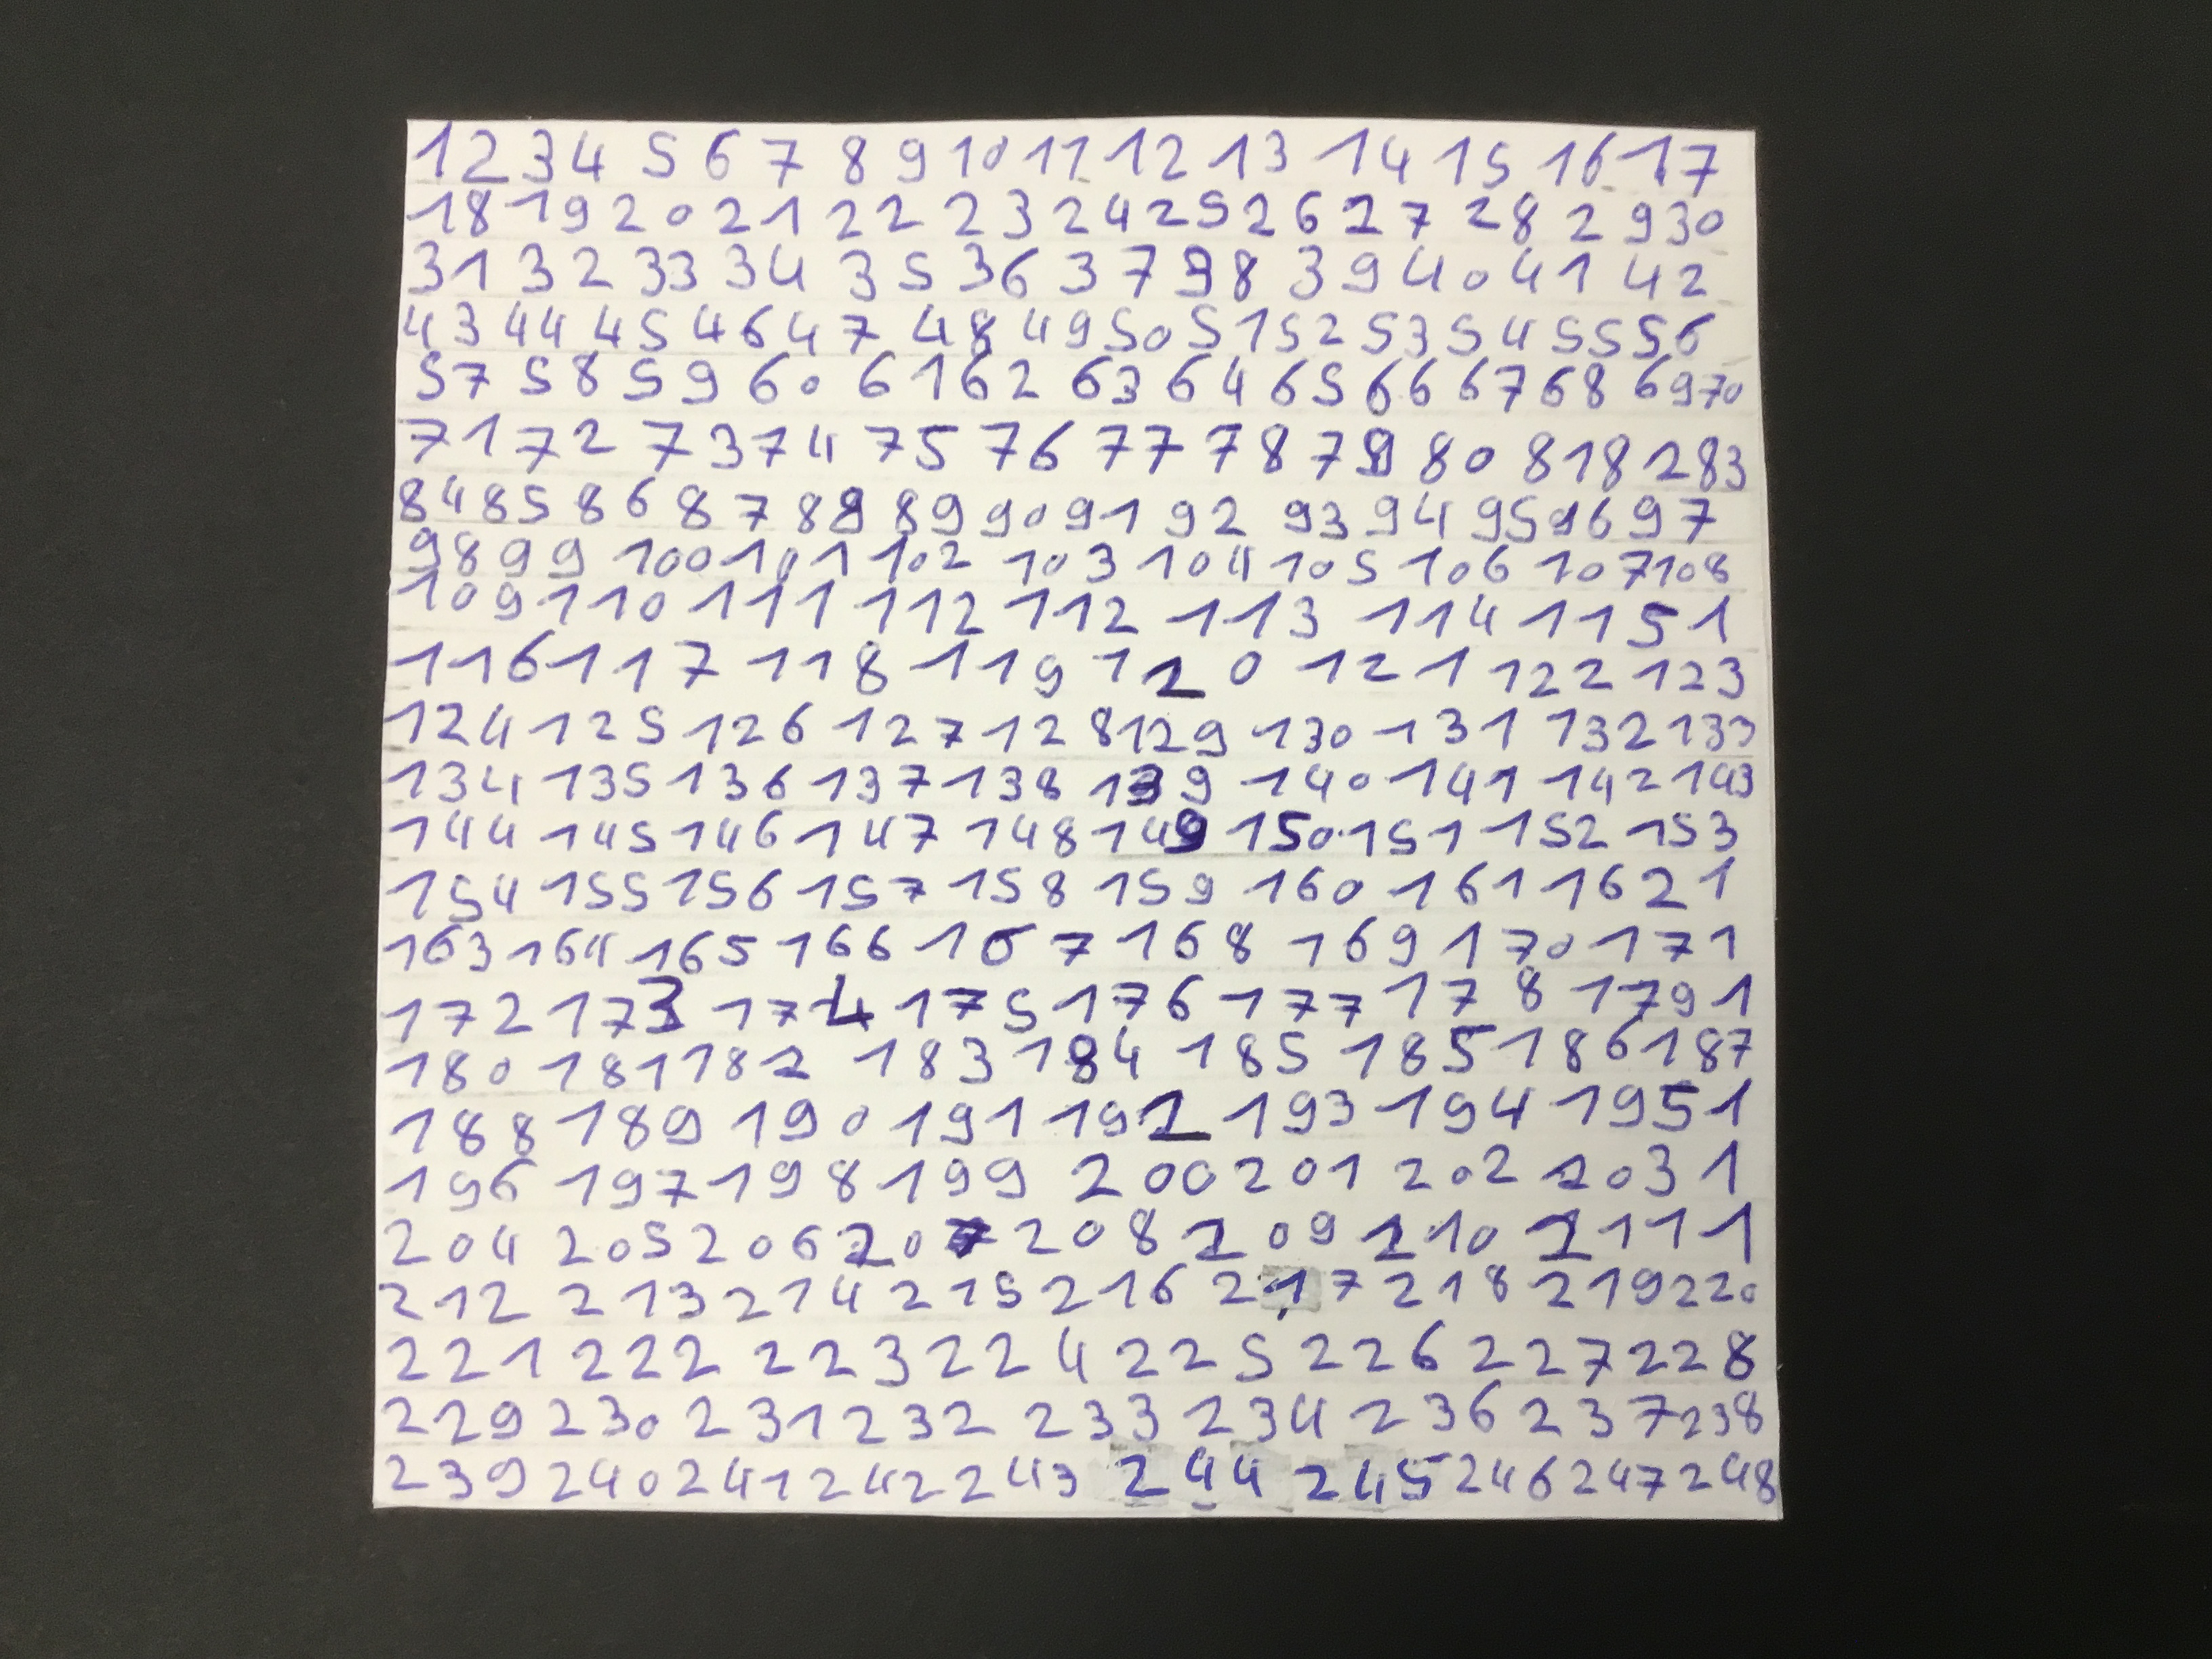 1 2 3 4 5 6 7 8 9 10 11 12 13 14 15 16 17
18 19 20 21 22 23 24 25 26 27 28 29 30
31 32 33 34 35 36 37 38 39 40 41 42
43 44 45 46 47 48 49 50 51 52 53 54 55 56
57 58 59 60 61 62 63 64 65 66 67 68 69 70
71 72 73 74 75 76 77 78 79 80 81 82 83
84 85 86 87 88 89 90 91 92 93 94 95 96 97
98 99 100 101 102 103 104 105 106 107 108
109 110 111 112 112 113 114 115 1
116 117 118 119 120 121 122 123
124 125 126 127 128 129 130 131 132 133
134 135 136 137 138 139 140 141 142 143
144 145 146 147 148 149 150 151 152 153
154 155 156 157 158 159 160 161 162 1
163 164 165 166 167 168 169 170 171
172 173 174 175 176 177 178 179 1
180 181 182 183 184 185 185 186 187
188 189 190 191 192 193 194 195 1
196 197 198 199 200 201 202 203 1
204 205 206 207 208 209 210 211 1
212 213 214 215 216 217 218 219 220
221 222 223 224 225 226 227 228
229 230 231 232 233 234 236 237 238
239 240 241 242 243 244 245 246 247 248